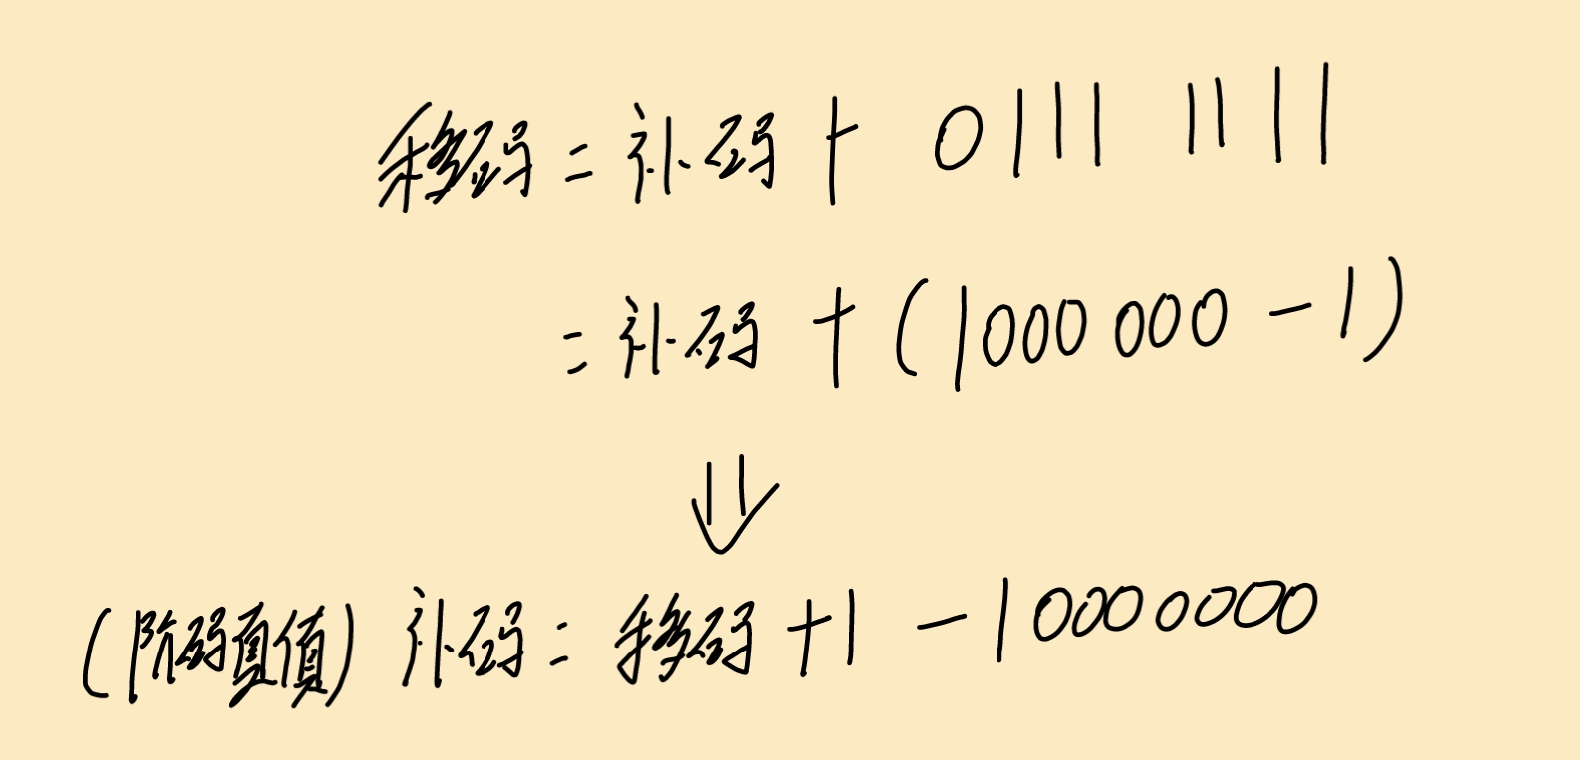 移码 = 补码 + 0111 1111
= 补码 + (1000 000 - 1)
⇓
(阶码真值) 补码 = 移码 + 1 - 10000000